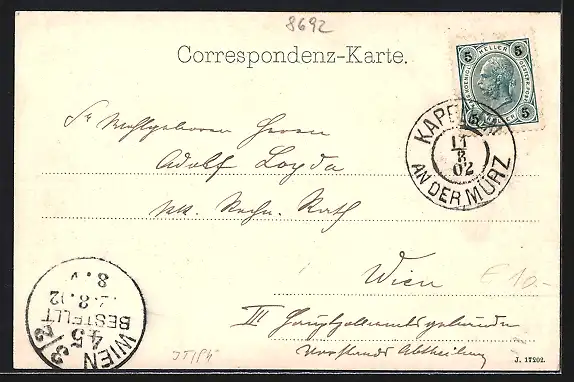 8692
Correspondenz-Karte.
5 KELLER 5
5 HELLER 5
KAPELLEN
11
8
02
AN DER MÜRZ
Sr Wohlgeboren Herrn
Adolf Loyda
kk. Rechn. Rath
Wien
€ 10.-
III Hauptzollamtsgebäude
Vorstands Abtheilung
WIEN 3/3
45
BESTELLT
.8.02
8.V
J. 17202.